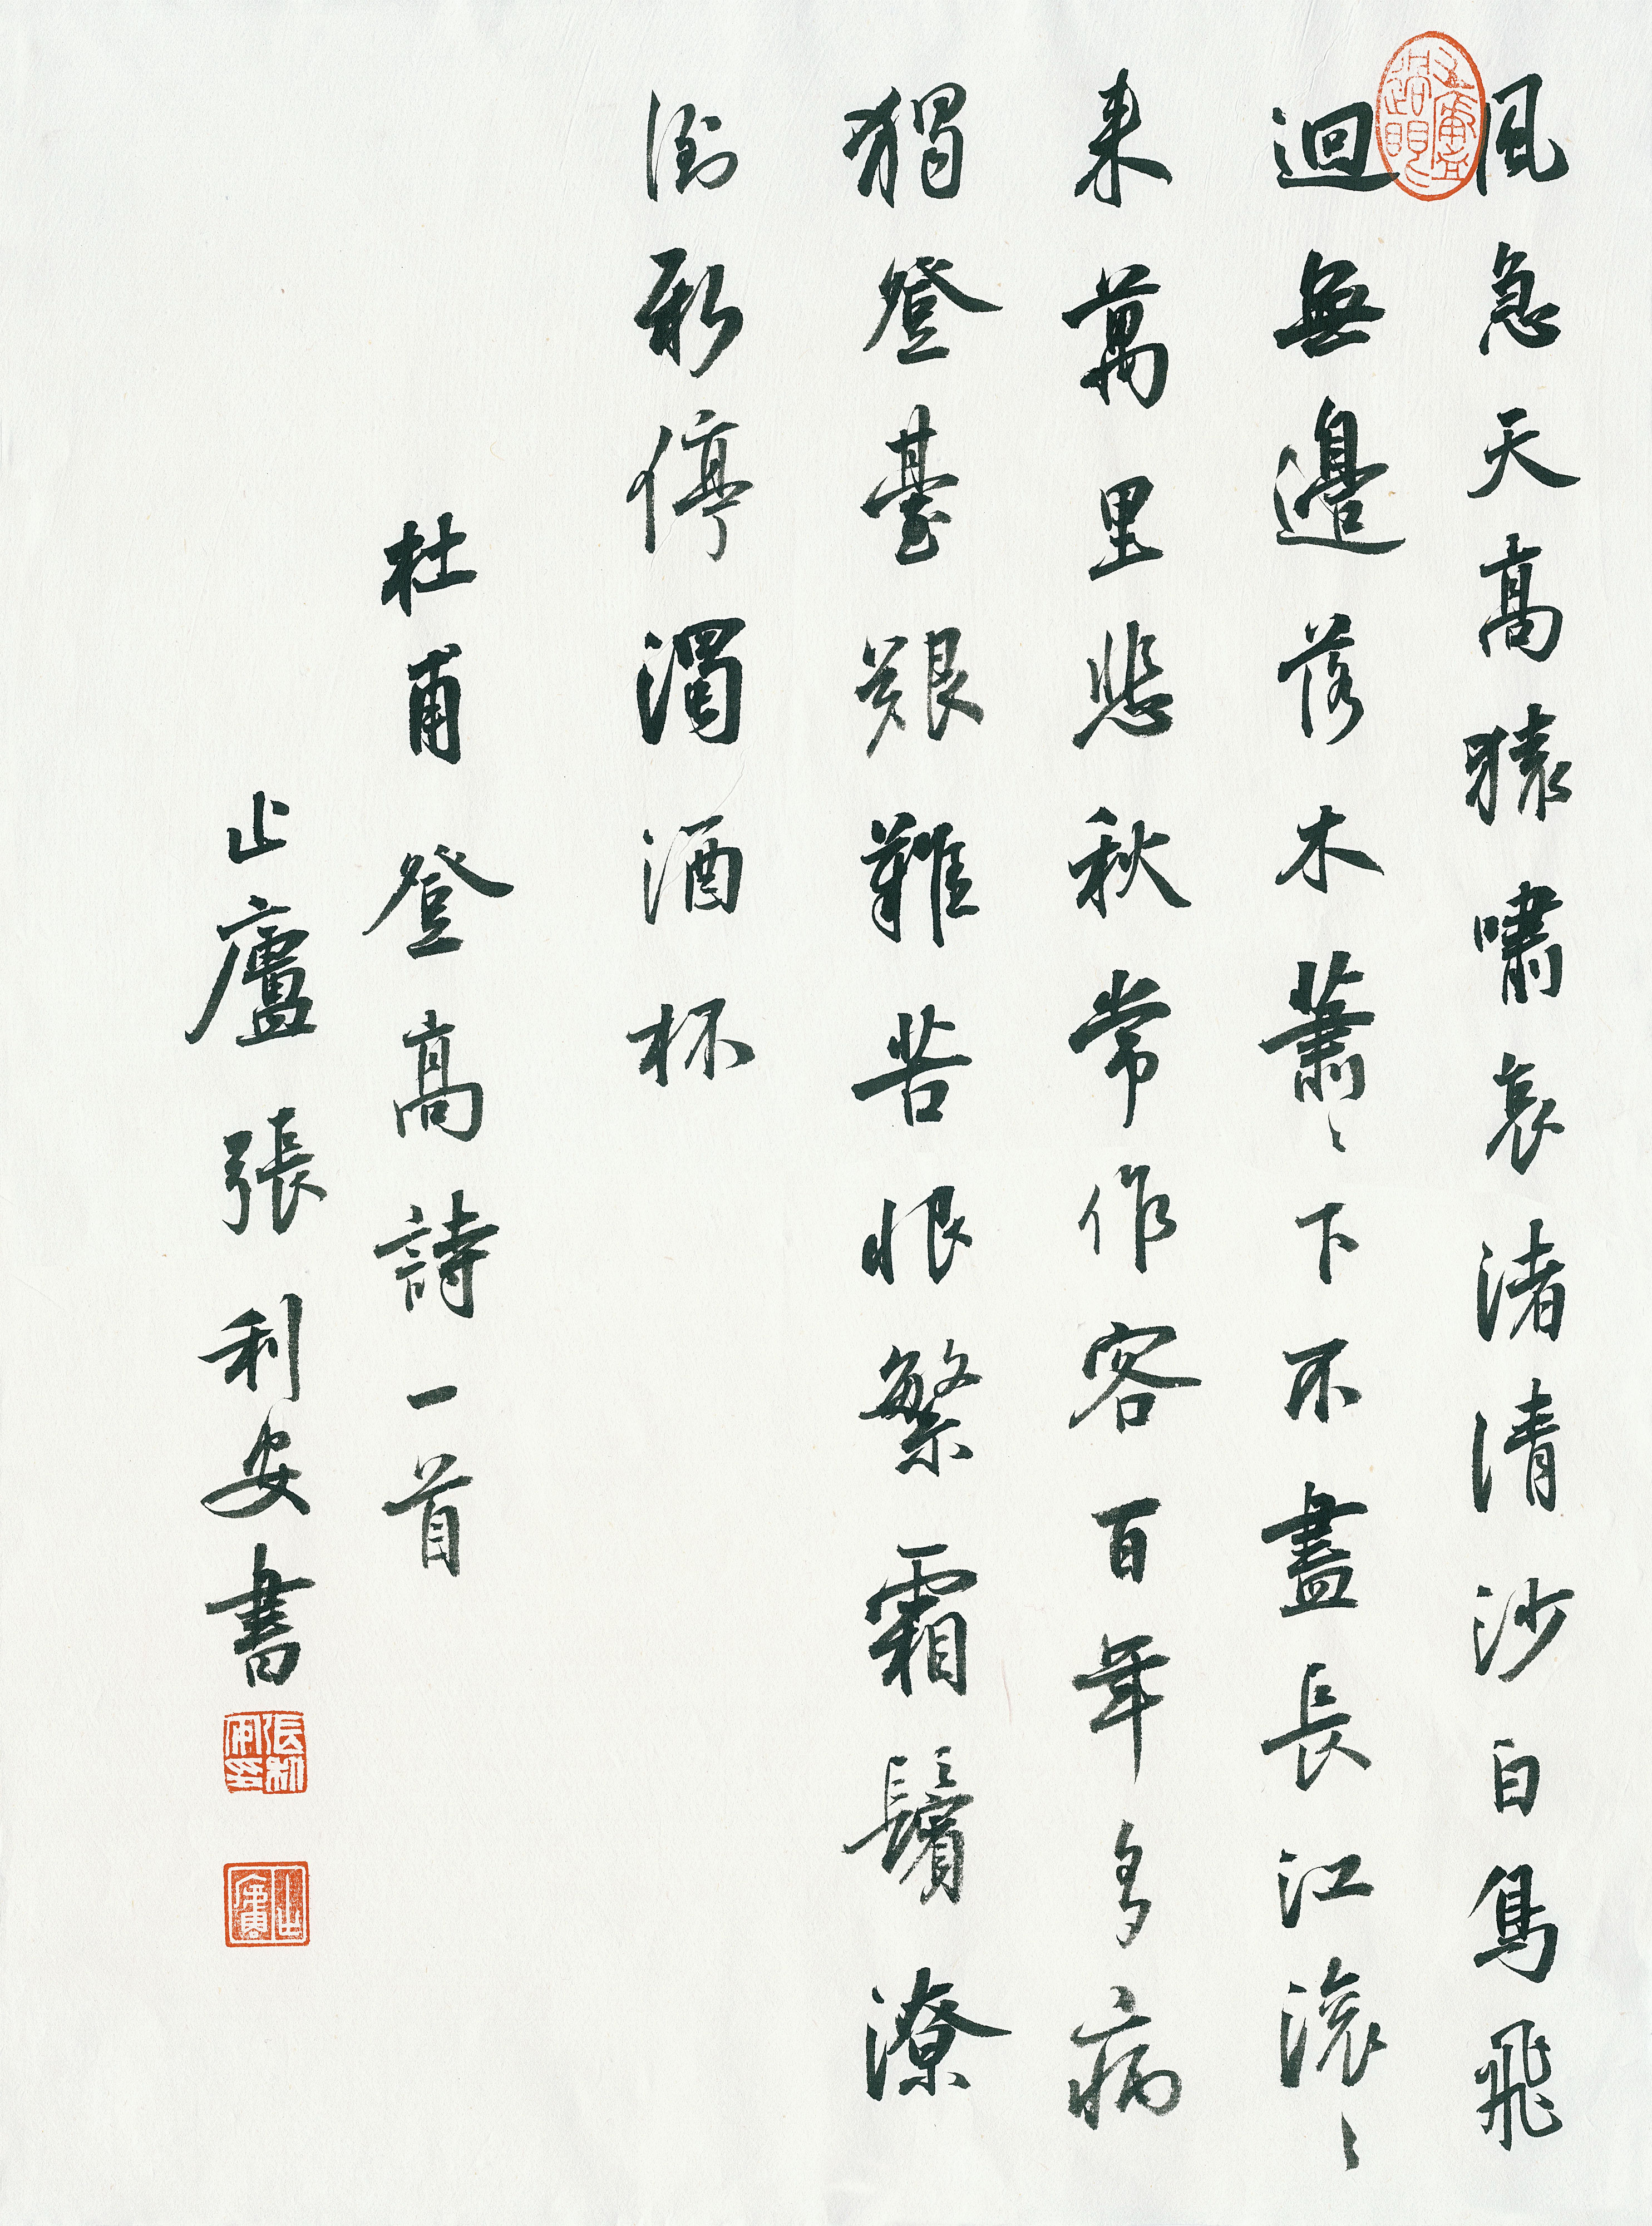 風急天高猿嘯哀渚清沙白鳥飛
迴無邊落木蕭〻下不盡長江滾〻
来萬里悲秋常作客百年多病
獨登臺艱難苦恨繁霜鬢潦
倒新停濁酒杯
杜甫登高詩一首
止廬張利安書
張利安印
止廬